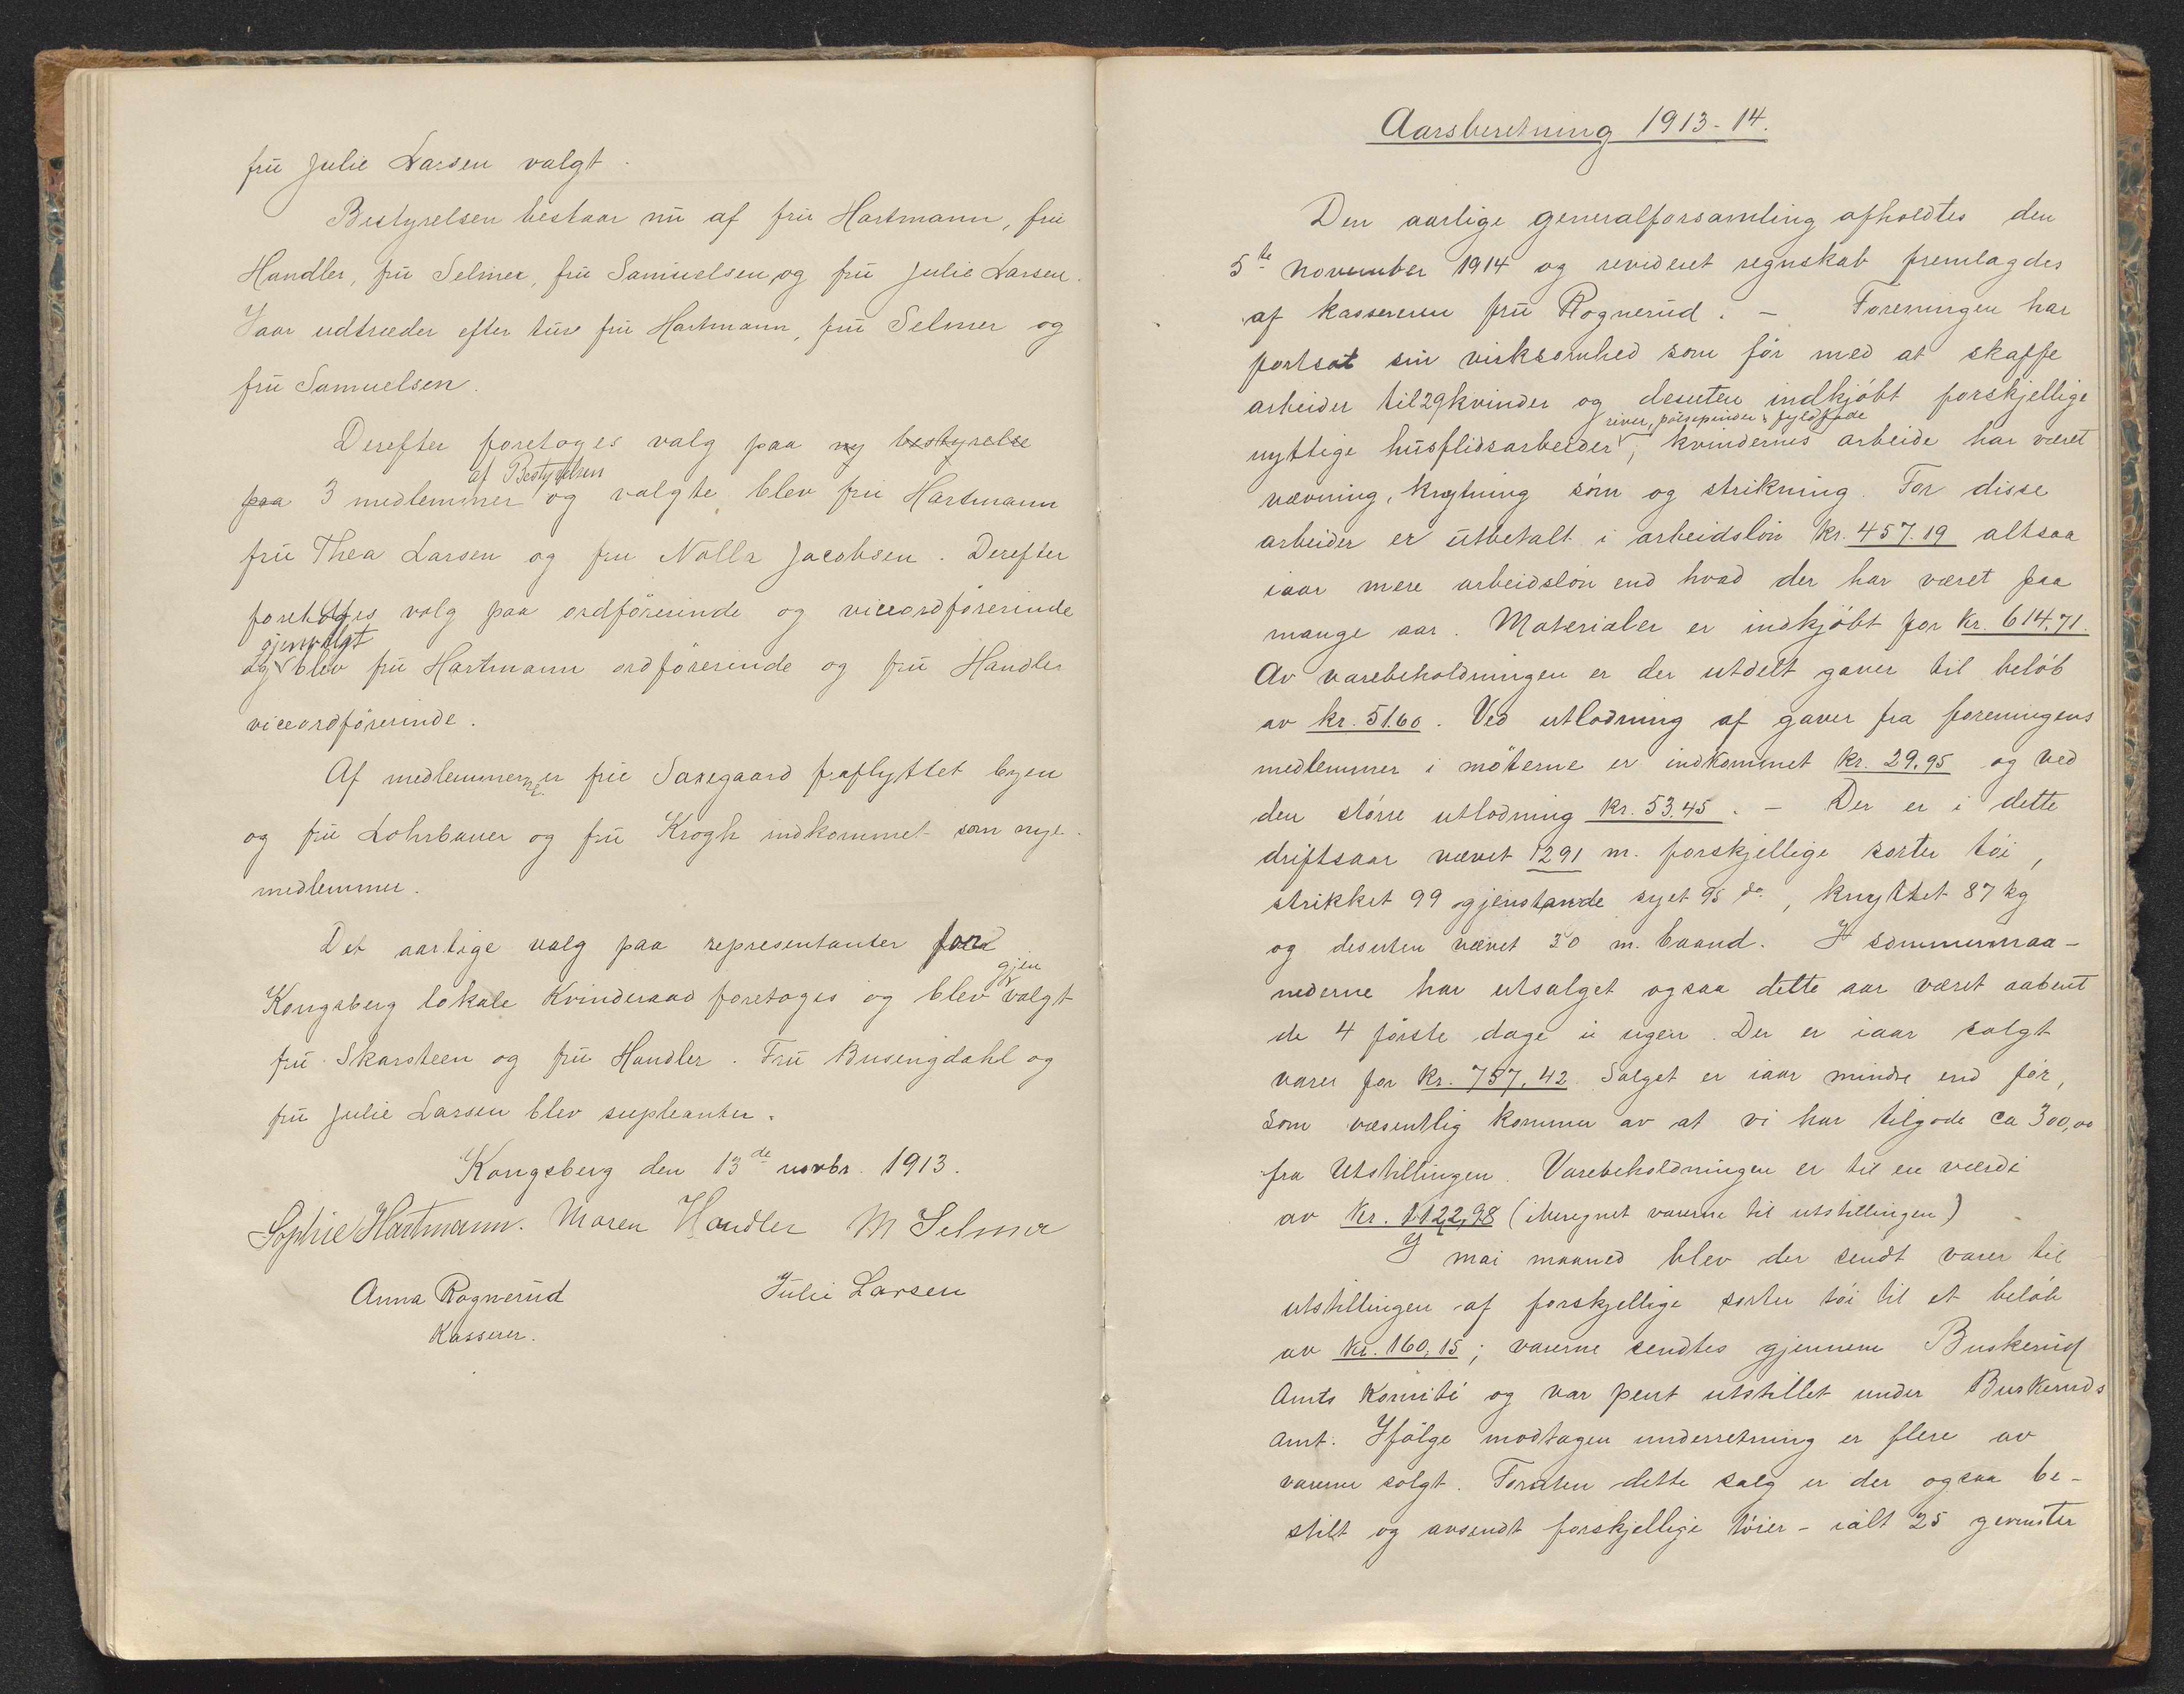 fru Julie Larsen valgt.
Bestyrelsen bestaar nu af fru Hartmann, fru
Handler, fru Selmer, fru Samuelsen og fru Julie Larsen.
Iaar udtræder efter tur fru Hartmann, fru Selmer og
fru Samuelsen.
Derefter foretoges valg paa ny bestyrelse
af Bestyrelsen
paa 3 medlemmer og valgte blev fru Hartmann
fru Thea Larsen og fru Nolla Jacobsen. Derefter
foretoges valg paa ordförerinde og viceordförerinde
gjenvalgt
og blev fru Hartmann ordförerinde og fru Handler
viceordförerinde.
Af medlemmerne er fru Saxegaard fraflyttet byen
og fru Lohrbauer og fru Krogh indkommet som nye
medlemmer.
Det aarlige valg paa representanter for
gjen
Kongsberg lokale Kvinderaad foretoges og blev valgt
fru Skarsteen og fru Handler. Fru Busengdahl og
fru Julie Larsen blev supleanter.
Kongsberg den 13de novbr. 1913.
Sophie Hartmann. Maren Handler M Selmer
Anna Rognerud Julie Larsen
Kasserer.
Aarsberetning 1913-14.
Den aarlige generalforsamling afholdtes den
5te november 1914 og revideret regnskab fremlagdes
af kassereren fru Rognerud. - Foreningen har
fortsat sin virksomhed som för med at skaffe
arbeider til 29 kvinder og desuten indkjöbt forskjellige
river, pölsepinder, fyldfade
nyttige husflidsarbeider, kvindernes arbeide har været
vævning, knytning söm og strikning. For disse
arbeider er utbetalt i arbeidslön kr. 457.19 altsaa
iaar mere arbeidslön end hvad der har været paa
mange aar. Materialer er indkjöbt for kr. 614,71.
Av varebeholdningen er der utdelt gaver til belöb
av kr. 51.60. Ved utlodning af gaver fra foreningens
medlemmer i möterne er indkommet kr. 29.95 og ved
den större utlodning kr. 53.45. - Der er i dette
driftsaar vævet 1291 m. forskjellige sorter töi,
strikket 99 gjenstande syet 95 do, knyttet 87 kg
og desuten vævet 30 m. baand. I sommermaa-
nederne har utsalget ogsaa dette aar været aabent
de 4 förste dage i ugen. Der er iaar solgt
varer for kr. 757,42. Salget er iaar mindre end för,
som væsentlig kommer av at vi har tilgode ca 300,00
fra Utstillingen. Varebeholdningen er til en værdi
av kr. 1122,98 (iberegnet varerne til utstillingen)
I mai maaned blev der sendt varer til
utstillingen af forskjellige sorter töi til et belöb
av kr. 160,15; varerne sendtes gjennem Buskerud
Amts Komité og var pent utstillet under Buskeruds
Amt. Ifölge modtagen underretning er flere av
varerne solgt. Foruten dette salg er der ogsaa be-
stilt og avsendt forskjellige töier - ialt 25 gevinster